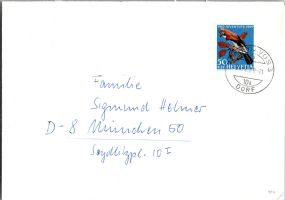 PRO JUVENTUTE
50
HELVETIA
DORF
Familie
Sigmund Helmer
D-8 München 50
Seydlitzpl. 10 I